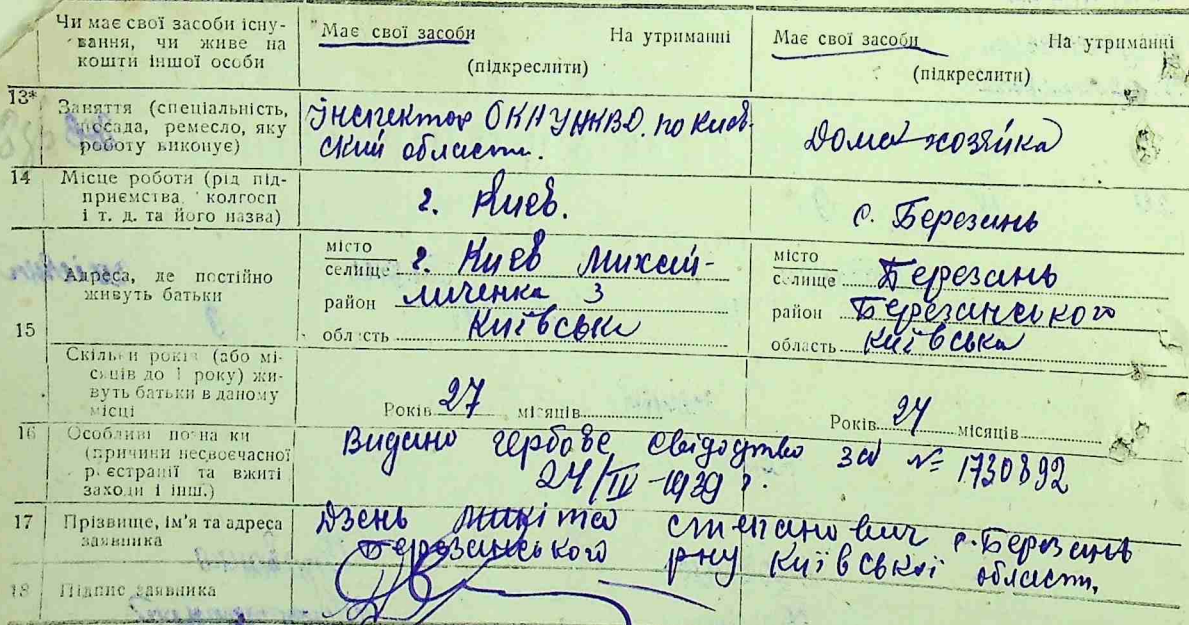 Чи має свої засоби існу-
вання, чи живе на
кошти іншої особи
Має свої засоби На утриманні
(підкреслити)
Має свої засоби На утриманні
(підкреслити)
13*
Заняття (спеціальність,
посада, ремесло, яку
роботу виконує)
Інспектор ОКН УНКВД. по Киев-
ский области.
Домахозяйка
14
Місце роботи (рід під-
приємства, колгосп
і т. д. та його назва)
г. Киев.
с. Березань
15
Адреса, де постійно
живуть батьки
місто
селище г. Киев Михай-
район личенка 3
область Київська
місто
селище Березань
район Березанського
область Київська
Скільки років (або мі-
сяців до 1 року) жи-
вуть батьки в даному
місці
Років 27 місяців
Років 24 місяців
16
Особливі познаки
(причини несвоєчасної
реєстрації та вжиті
заходи і інш.)
Видано гербове свідоцтво за № 1730892
24/IV-1939 г.
17
Прізвище, ім'я та адреса
заявника
Дзень Микита Степанович с. Березань
Березанського рну Київської области,
18
Підпис заявника